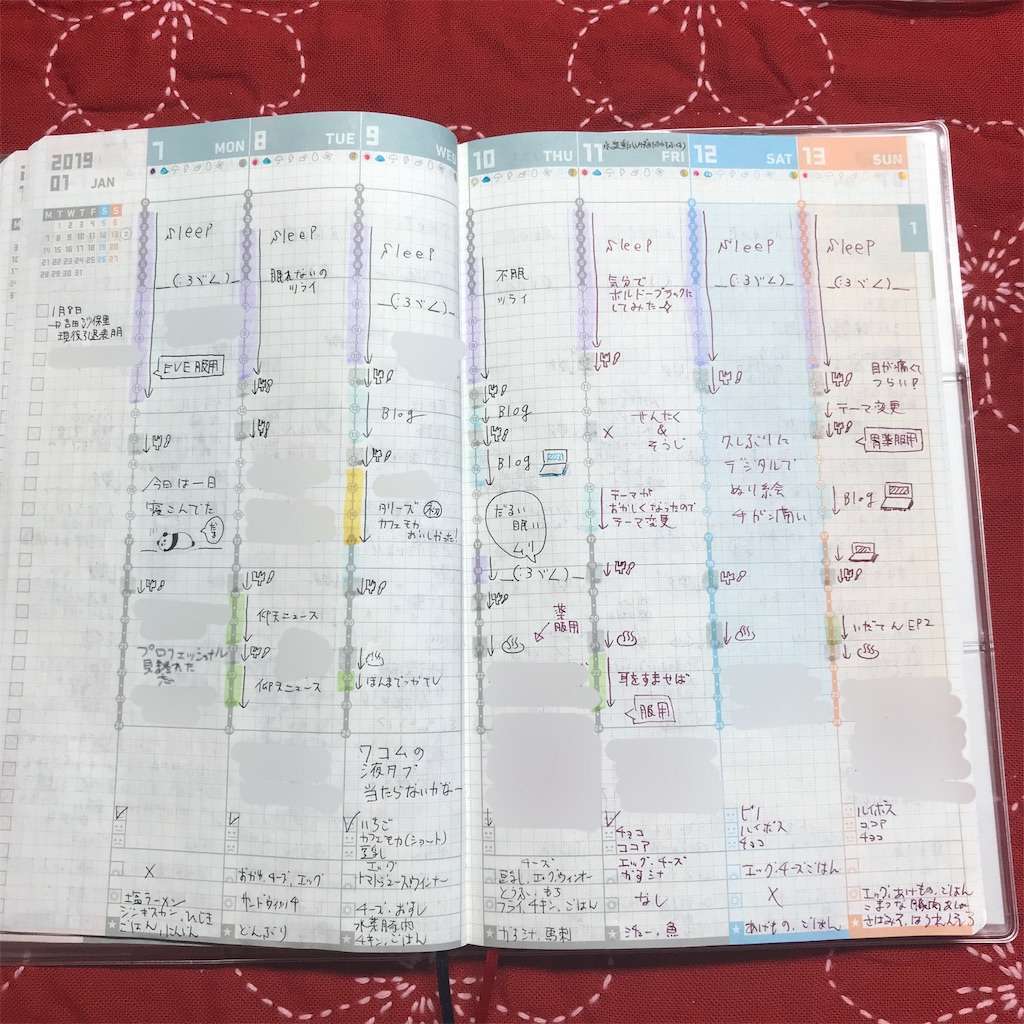 2019
01 JAN
M T W T F S S
1 2 3 4 5 6
7 8 9 10 11 12 13
14 15 16 17 18 19 20
21 22 23 24 25 26 27
28 29 30 31
1月8日
吉田沙保里
現役引退表明
7 MON
sleep
_(:3 」∠)_
EVE服用
今日は一日
寝こんでた
プロフェッショナル
見逃した
×
塩ラーメン
ジンギスカン、ひじき
ごはん、にんにく
8 TUE
sleep
眠れないの
ツライ
仰天ニュース
仰天ニュース
おかゆ、チーズ、エッグ
サンドウィッチ
どんぶり
9 WED
sleep
_(:3 」∠)_
Blog
タリーズ 初
カフェモカ
おいしかった!
ほんまでっかTV
ワコムの
液タブ
当たらないかなー
いちご
カフェモカ(ショート)
豆乳
エッグ
トマトソースウインナー
チーズ・おすし
水菜豚肉
チキン、ごはん
10 THU
不眠
ツライ
Blog
Blog
だるい
眠い
ムリ
_(:3 」∠)_
チーズ
豆乳、エッグ、ウィンナー
フライ、チキン、ごはん
かす汁、馬刺
11 FRI
sleep
気分で
ボルドーブラックに
してみた☆
×
せんたく
&
そうじ
テーマが
おかしくなったので
テーマ変更
薬
服用
耳をすませば
服用
チョコ
ココア
エッグ・チーズ
かす汁
なし
シチュー、魚
12 SAT
sleep
_(:3 」∠)_
久しぶりに
デジタルで
ぬり絵
手が痛い
ピノ
ルイボス
チョコ
エッグ・チーズごはん
×
あげもの、ごはん
13 SUN
sleep
_(:3 」∠)_
目が痛くて
つらい
テーマ変更
胃薬服用
Blog
いだてん EP2
ルイボス
ココア
チョコ
エッグ、あげもの、ごはん
さばみそ、ほうれんそう
1